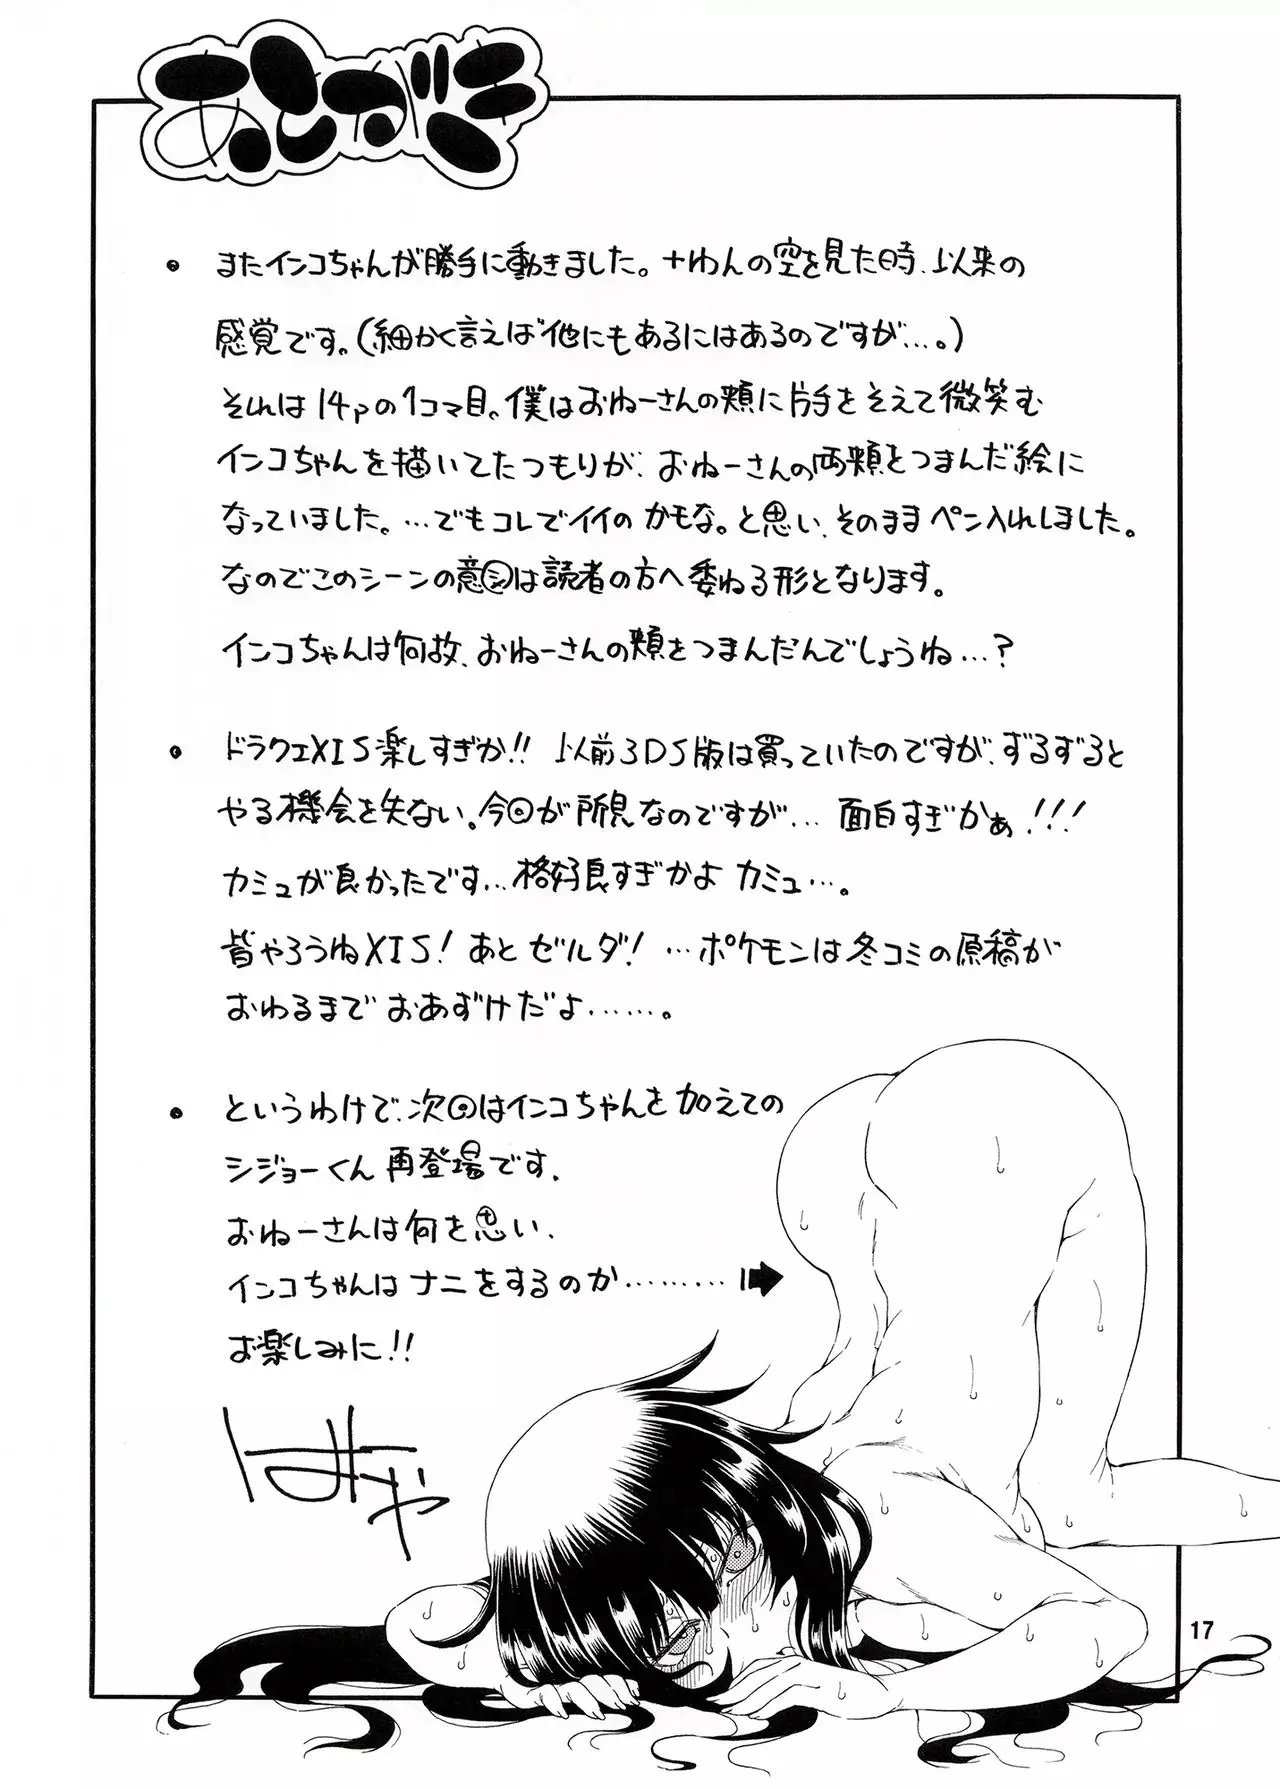 あとがき
• またインコちゃんが勝手に動きました。十わんの空を見た時、以来の
感覚です。(細かく言えば他にもあるにはあるのですが…。)
それは14pの1コマ目。僕はおねーさんの頬に片手をそえて微笑む
インコちゃんを描いてたつもりが、おねーさんの両頬をつまんだ絵に
なっていました。…でもコレでイイのかもな。と思い、そのままペン入れしました。
なのでこのシーンの意図は読者の方へ委ねる形となります。
インコちゃんは何故、おねーさんの頬をつまんだんでしょうね…？
• ドラクエXIS楽しすぎか!! 以前3DS版は買っていたのですが、ずるずると
やる機会を失ない。今回が初見なのですが… 面白すぎかぁ!!!
カミュが良かったです…格好良すぎかよ カミュ…。
皆やろうねXIS! あとゼルダ! …ポケモンは冬コミの原稿が
おわるまで おあずけだよ……。
• というわけで、次回はインコちゃんを加えての
シジョーくん 再登場です。
おねーさんは何を思い、
インコちゃんは ナニをするのか………
お楽しみに!!
17